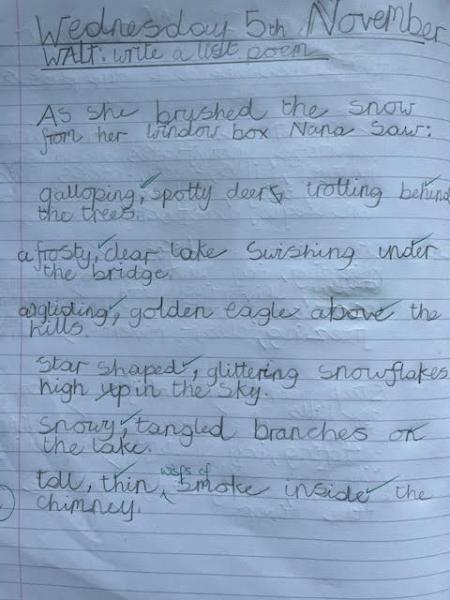 Wednesday 5th November
WALT: write a list poem
As she brushed the snow
from her window box Nana saw:
galloping, spotty deer, trotting behind
the trees.
a frosty, clear lake swishing under
the bridge.
a gliding, golden eagle above the
hills.
star shaped, glittering snowflakes
high up in the sky.
snowy, tangled branches on
the lake.
wisps of
tall, thin, smoke inside the
chimney.